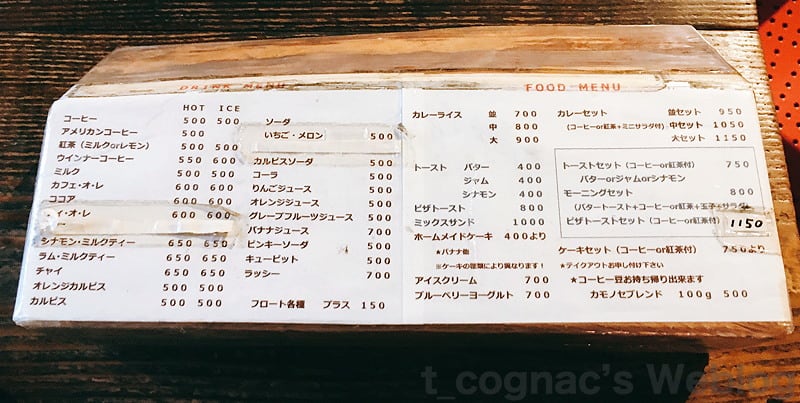 DRINK MENU
HOT ICE
コーヒー 500 500
アメリカンコーヒー 500
紅茶（ミルクorレモン） 500 500
ウインナーコーヒー 550 600
ミルク 500 500
カフェ・オ・レ 600 600
ココア 600 600
ィ・オ・レ 600 600
シナモン・ミルクティー 650 650
ラム・ミルクティー 650 650
チャイ 650 650
オレンジカルピス 500 500
カルピス 500 500
ソーダ
いちご・メロン 500
カルピスソーダ 500
コーラ 500
りんごジュース 500
オレンジジュース 500
グレープフルーツジュース 500
バナナジュース 700
ピンキーソーダ 500
キューピット 500
ラッシー 700
フロート各種 プラス 150
FOOD MENU
カレーライス 並 700
中 800
大 900
トースト バター 400
ジャム 400
シナモン 400
ピザトースト 800
ミックスサンド 1000
ホームメイドケーキ 400より
★バナナ他
※ケーキの種類により異なります！
アイスクリーム 700
ブルーベリーヨーグルト 700
カレーセット 並セット 950
（コーヒーor紅茶+ミニサラダ付）中セット 1050
大セット 1150
トーストセット（コーヒーor紅茶付） 750
バターorジャムorシナモン
モーニングセット 800
（バタートースト+コーヒーor紅茶+玉子+サラダ
ピザトーストセット（コーヒーor紅茶付） 1150
ケーキセット（コーヒーor紅茶付） 750より
★テイクアウトお申し付け下さい
★コーヒー豆お持ち帰り出来ます
カモノセブレンド 100g 500
t_cognac's Weblog